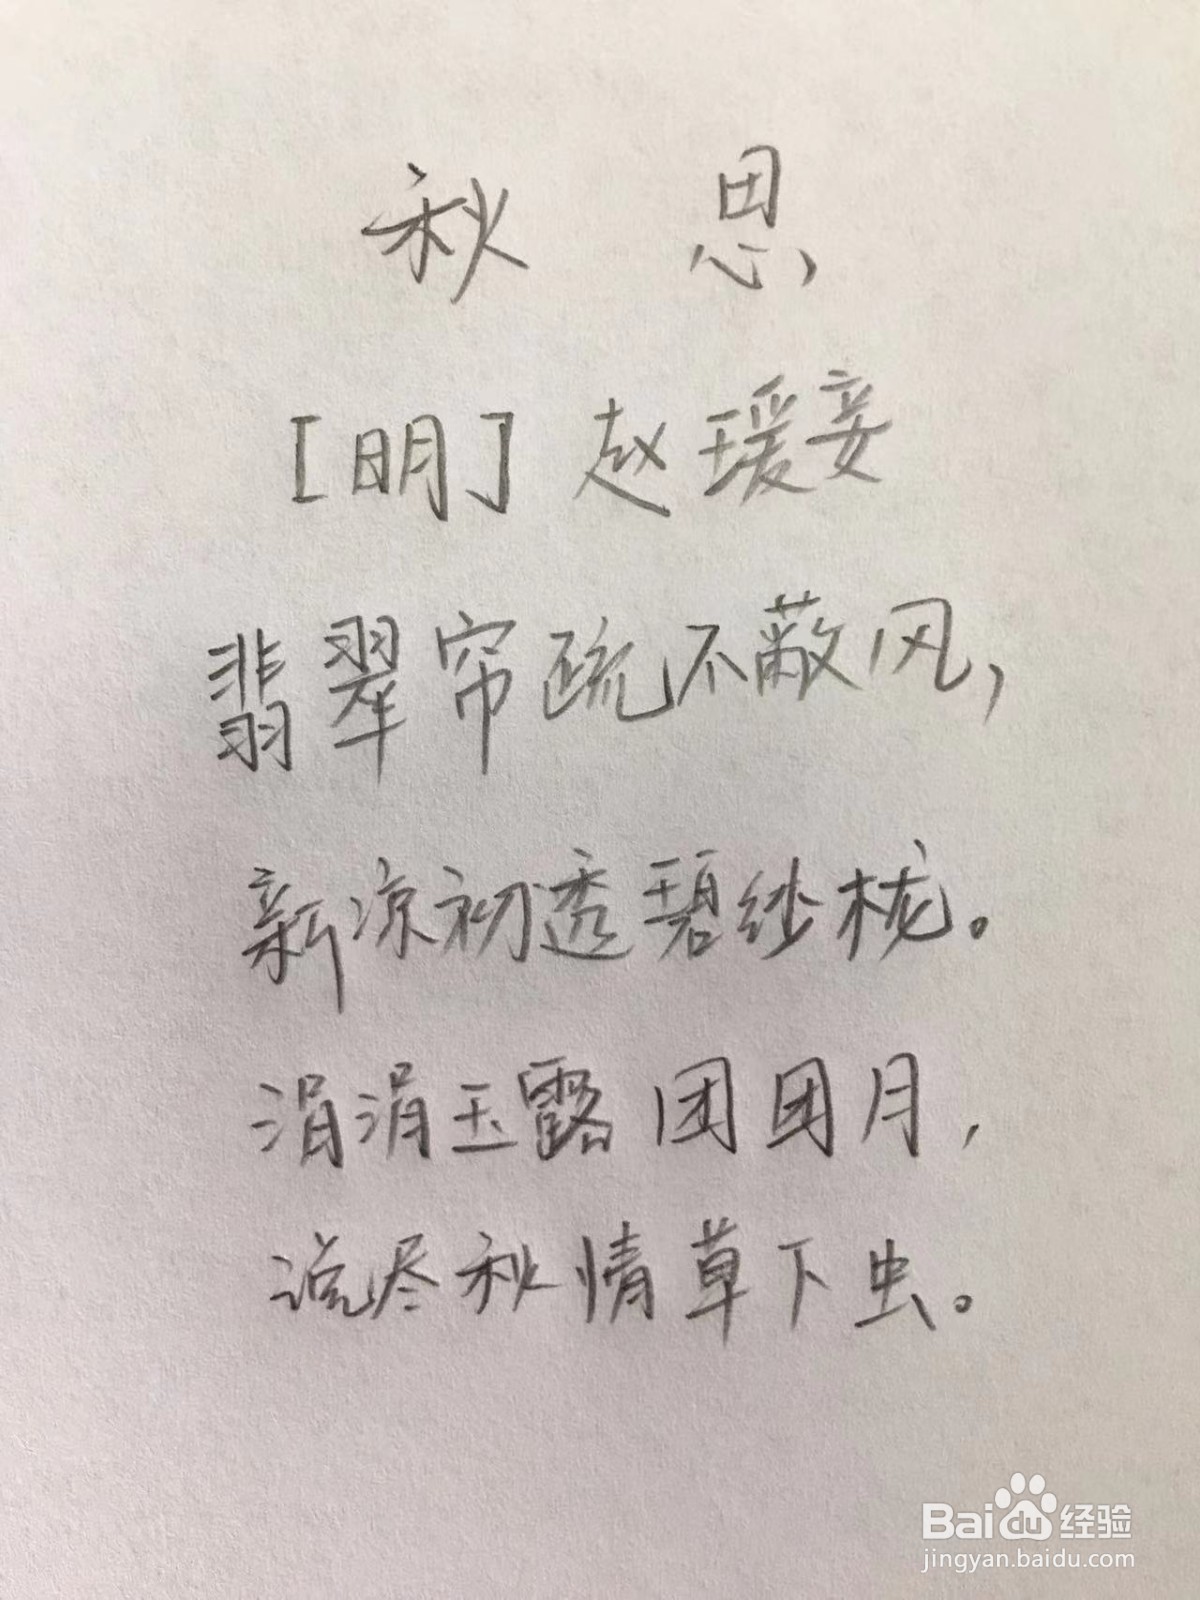 秋 思
[明] 赵瑗妾
翡翠帘疏不蔽风，
新凉初透碧纱栊。
涓涓玉露团团月，
说尽秋情草下虫。
Baidu经验
jingyan.baidu.com